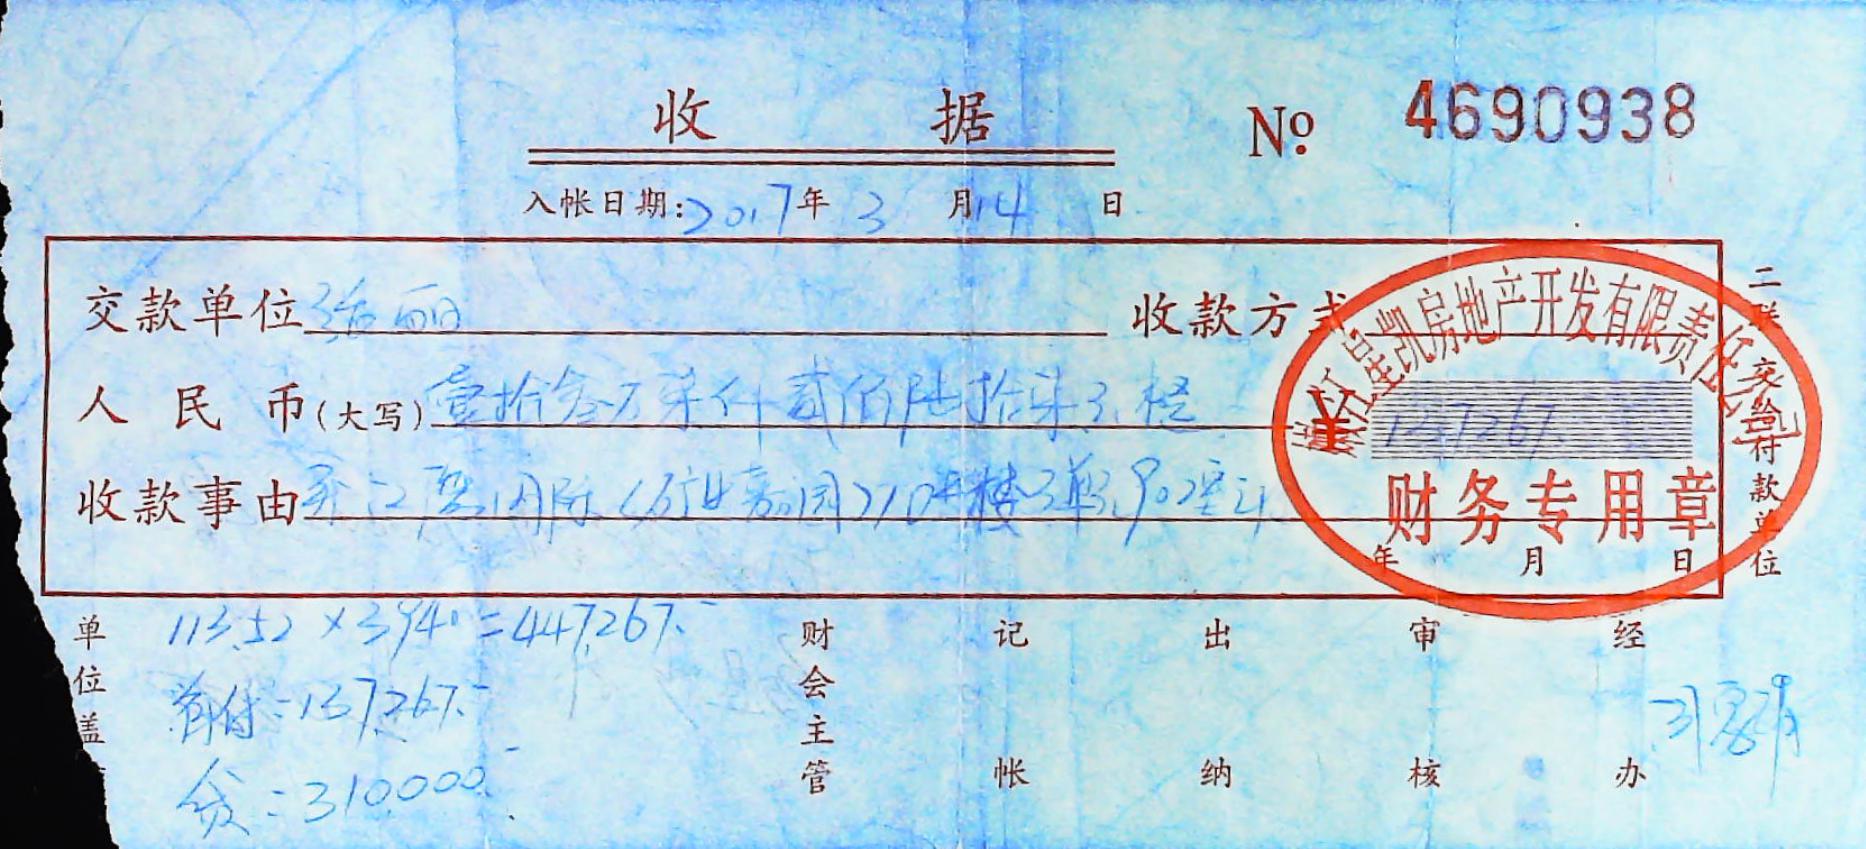 收 据
№ 4690938
入帐日期:2017年 3 月 14 日
交款单位 丽 收款方式
人民币(大写) 壹拾叁万柒仟贰佰陆拾柒元整
137267.
收款事由 国际(矿业嘉园)10#楼3单元902室
凯房地产开发有限责任公司
财务专用章
年 月 日
二联 交给付款单位
113.52×3940=447267.-
首付:137267.-
贷:310000.-
单位盖
财会主管
记帐
出纳
审核
经办